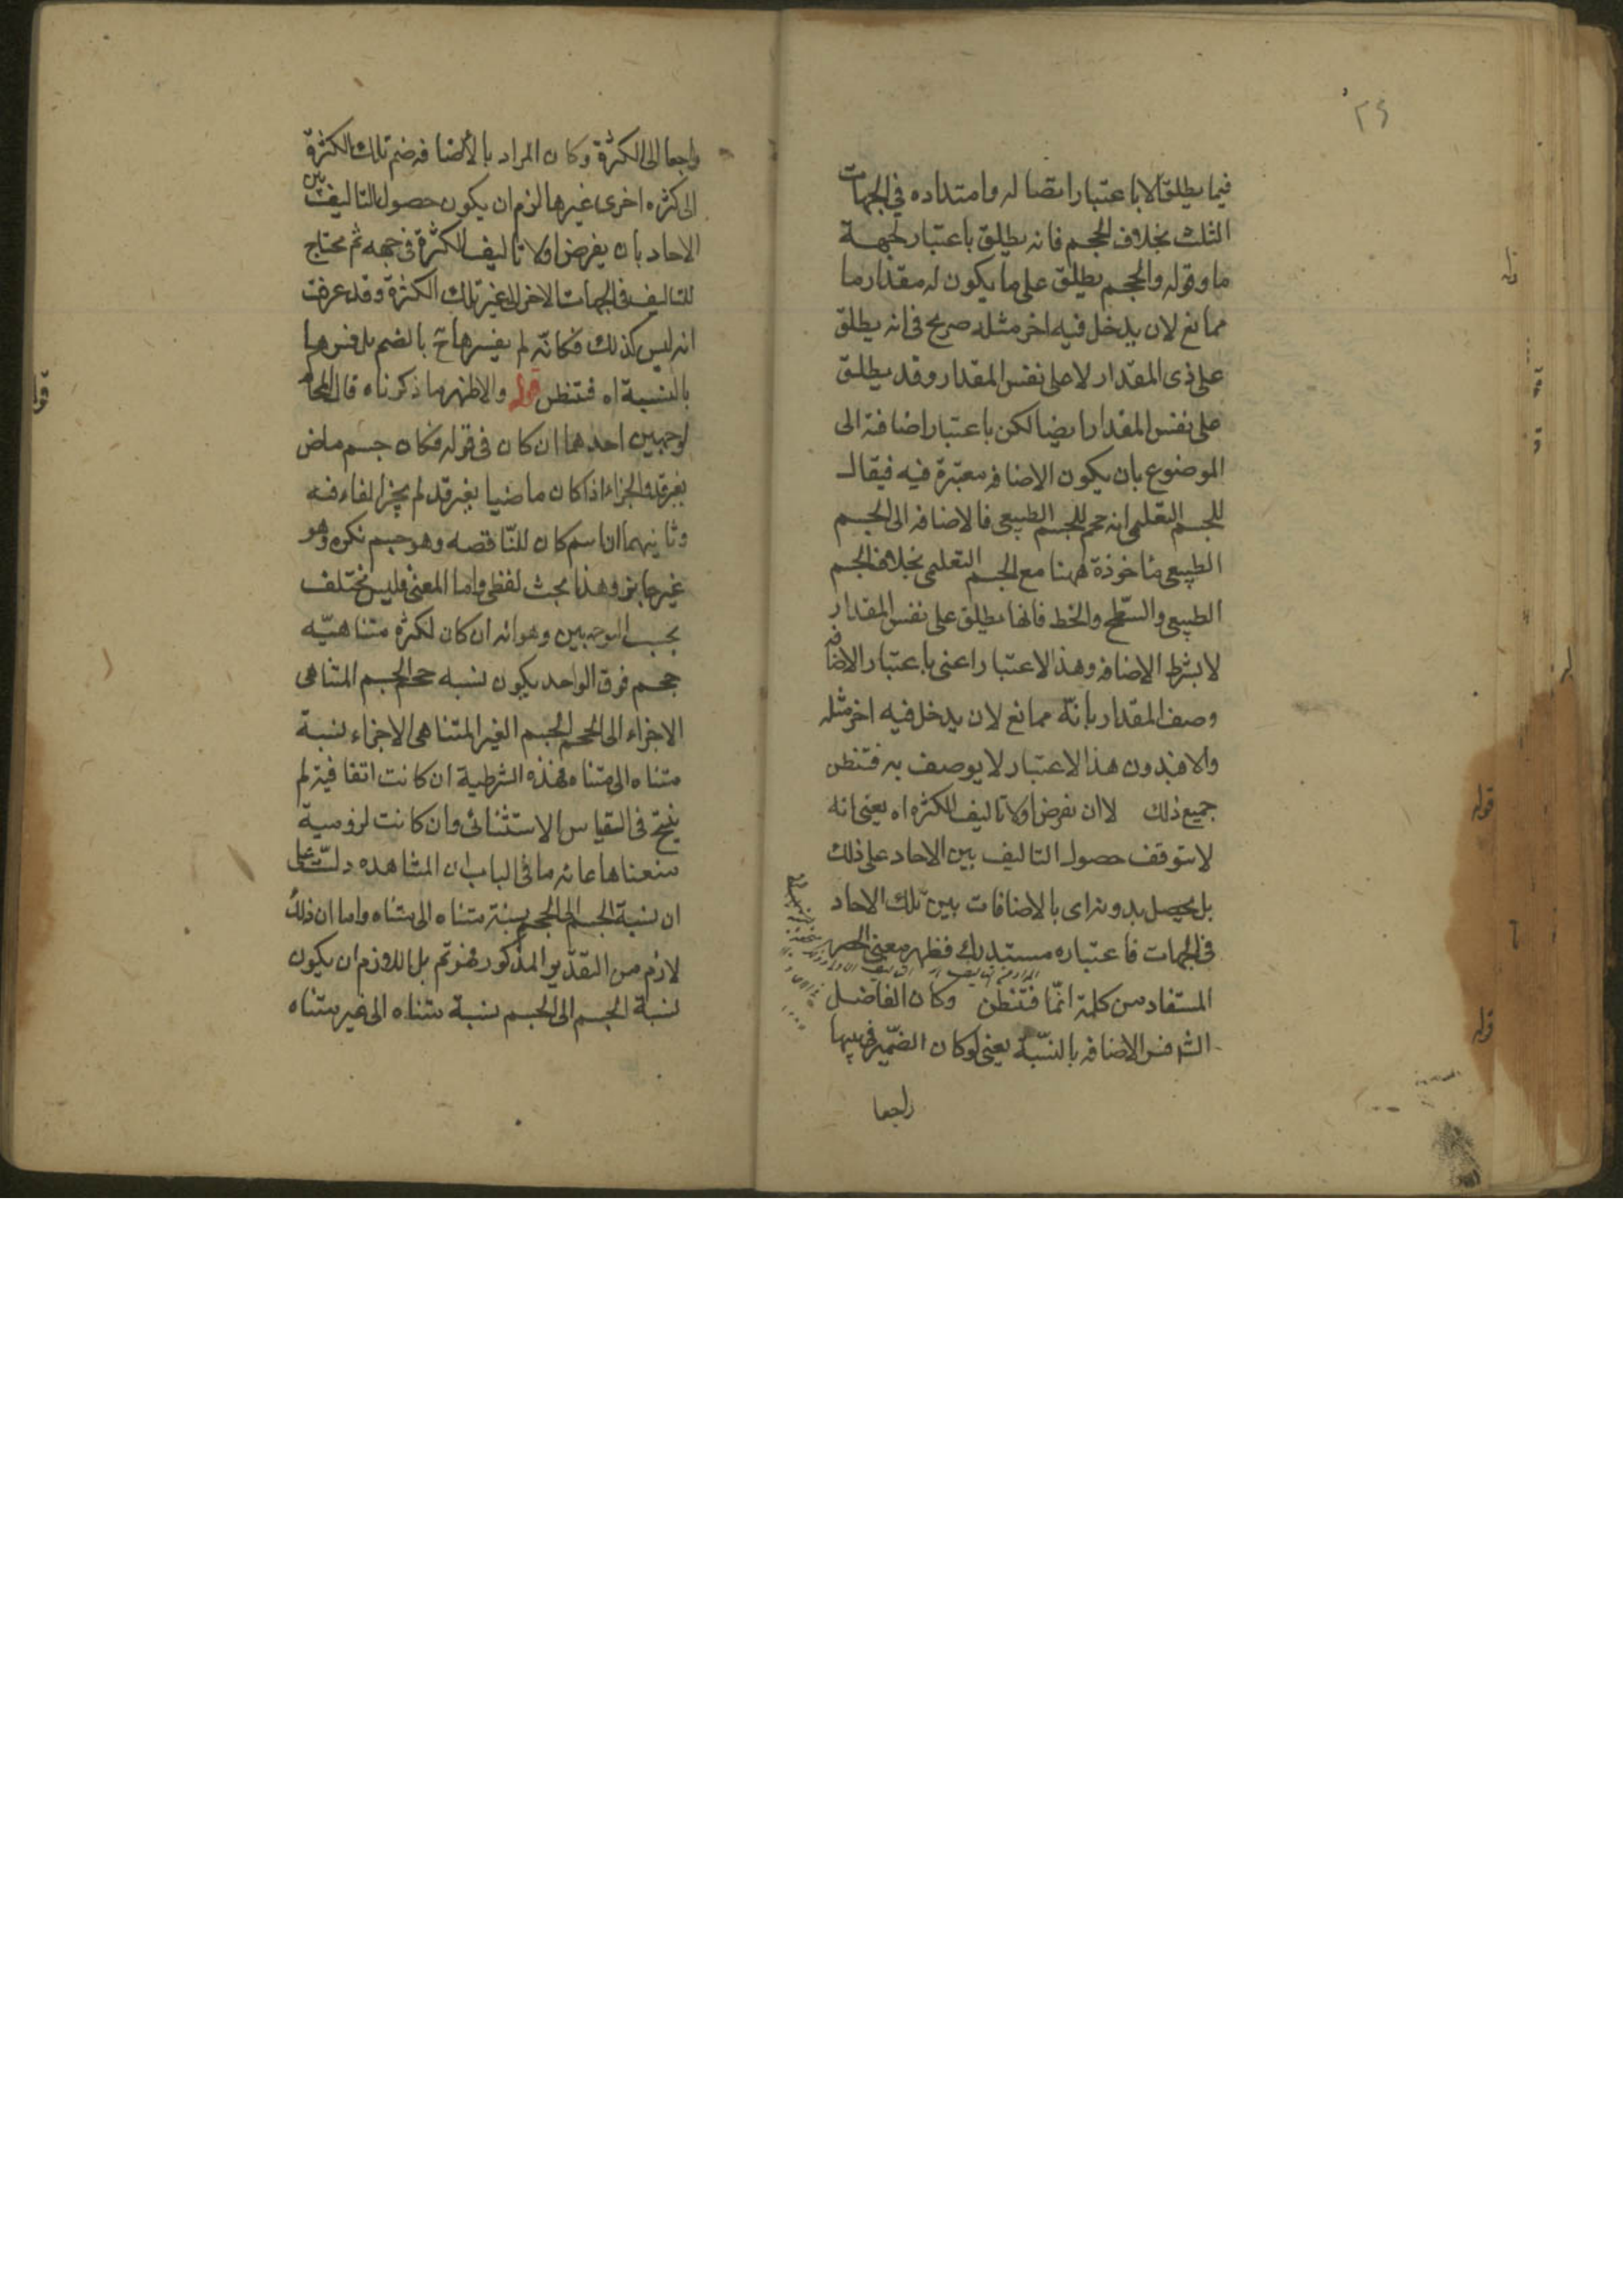 ٢٤
فيما يطلق الا باعتبار اتصاله وامتداده في الجهات
الثلث بخلاف الحجم فانه يطلق باعتبار لجهة
ما وقوله والحجم يطلق على ما يكون له مقدار ما
ممانع لان يدخل فيه اخر مثله صريح في انه يطلق
على ذي المقدار لا على نفس المقدار وقد يطلق
على نفس المقدار ايضا لكن باعتبار اضافته الى
الموضوع بان يكون الاضافه معتبرة فيه فيقال
للجسم التعلمى انه حجم للجسم الطبيعى فالاضافه الى الجسم
الطبيعى ماخوذة ههنا مع الجسم التعلمى بخلاف الجسم
الطبيعى والسطح والخط فانها يطلق على نفس المقدار
لا بشرط الاضافه وهذا الاعتبار اعنى باعتبار الاضافه
وصف المقدار بانّه ممانع لان يدخل فيه اخر مثله
والا فبدون هذا الاعتبار لا يوصف به فتفطن
جميع ذلك لا ان نفرض اولا تاليف الكثره اه يعنى انه
لا يتوقف حصول التاليف بين الاحاد على ذلك
بل يحصل بدونه اى بالاضافات بين تلك الاحاد
فى الجهات فاعتباره مستدرك فظهر معنى الحصر
المستفاد من كلمة انّما فتفطن وكان الفاضل
الشـ فسر الاضافه بالنسبة يعنى لو كان الضمير فى بينها
راجعا
قوله
قوله
راجعا الى الكثرة وكان المراد بالاضافه ضم تلك الكثرة
الى كثره اخرى غيرها لزم ان يكون حصول التاليف بين
الاحاد بان يفرض اولا تاليف الكثرة فى جهه ثم يحتاج
للتاليف فى الجهات الاخر الى غير تلك الكثرة وقد عرفت
انه ليس كذلك فكانّه لم يفسرها ح بالضم بل فسرها
بالنسبة اه فتفطن قوله والاظهر ما ذكرناه قال المحا
لوجهين احدهما ان كان فى قوله فكان جسم ماض
بغير قد والجزاء اذا كان ماضيا بغير قد لم يجز الفاء فيه
وثانيهما ان اسم كان للنّاقصه وهو جسم نكره وهو
غير جايز وهذا بحث لفظى واما المعنى فليس يختلف
بحسب الوجهين وهو انه ان كان لكثره متناهيّه
حجم فوق الواحد يكون نسبه حجم الجسم المتناهى
الاجزاء الى الحجم الجسم الغير المتناهى الاجزاء نسبة
متناه الى متناه فهذه الشرطية ان كانت اتفاقية لم
ينتج فى القياس الاستثنائى وان كانت لزومية
منعناها غاية ما فى الباب ان المشاهده دلّت على
ان نسبة الجسم الى الحجم نسبة متناه الى متناه واما ان ذلك
لازم من التقدير المذكور فهو تم بل اللازم ان يكون
نسبة الجسم الى الجسم نسبة متناه الى غير متناه